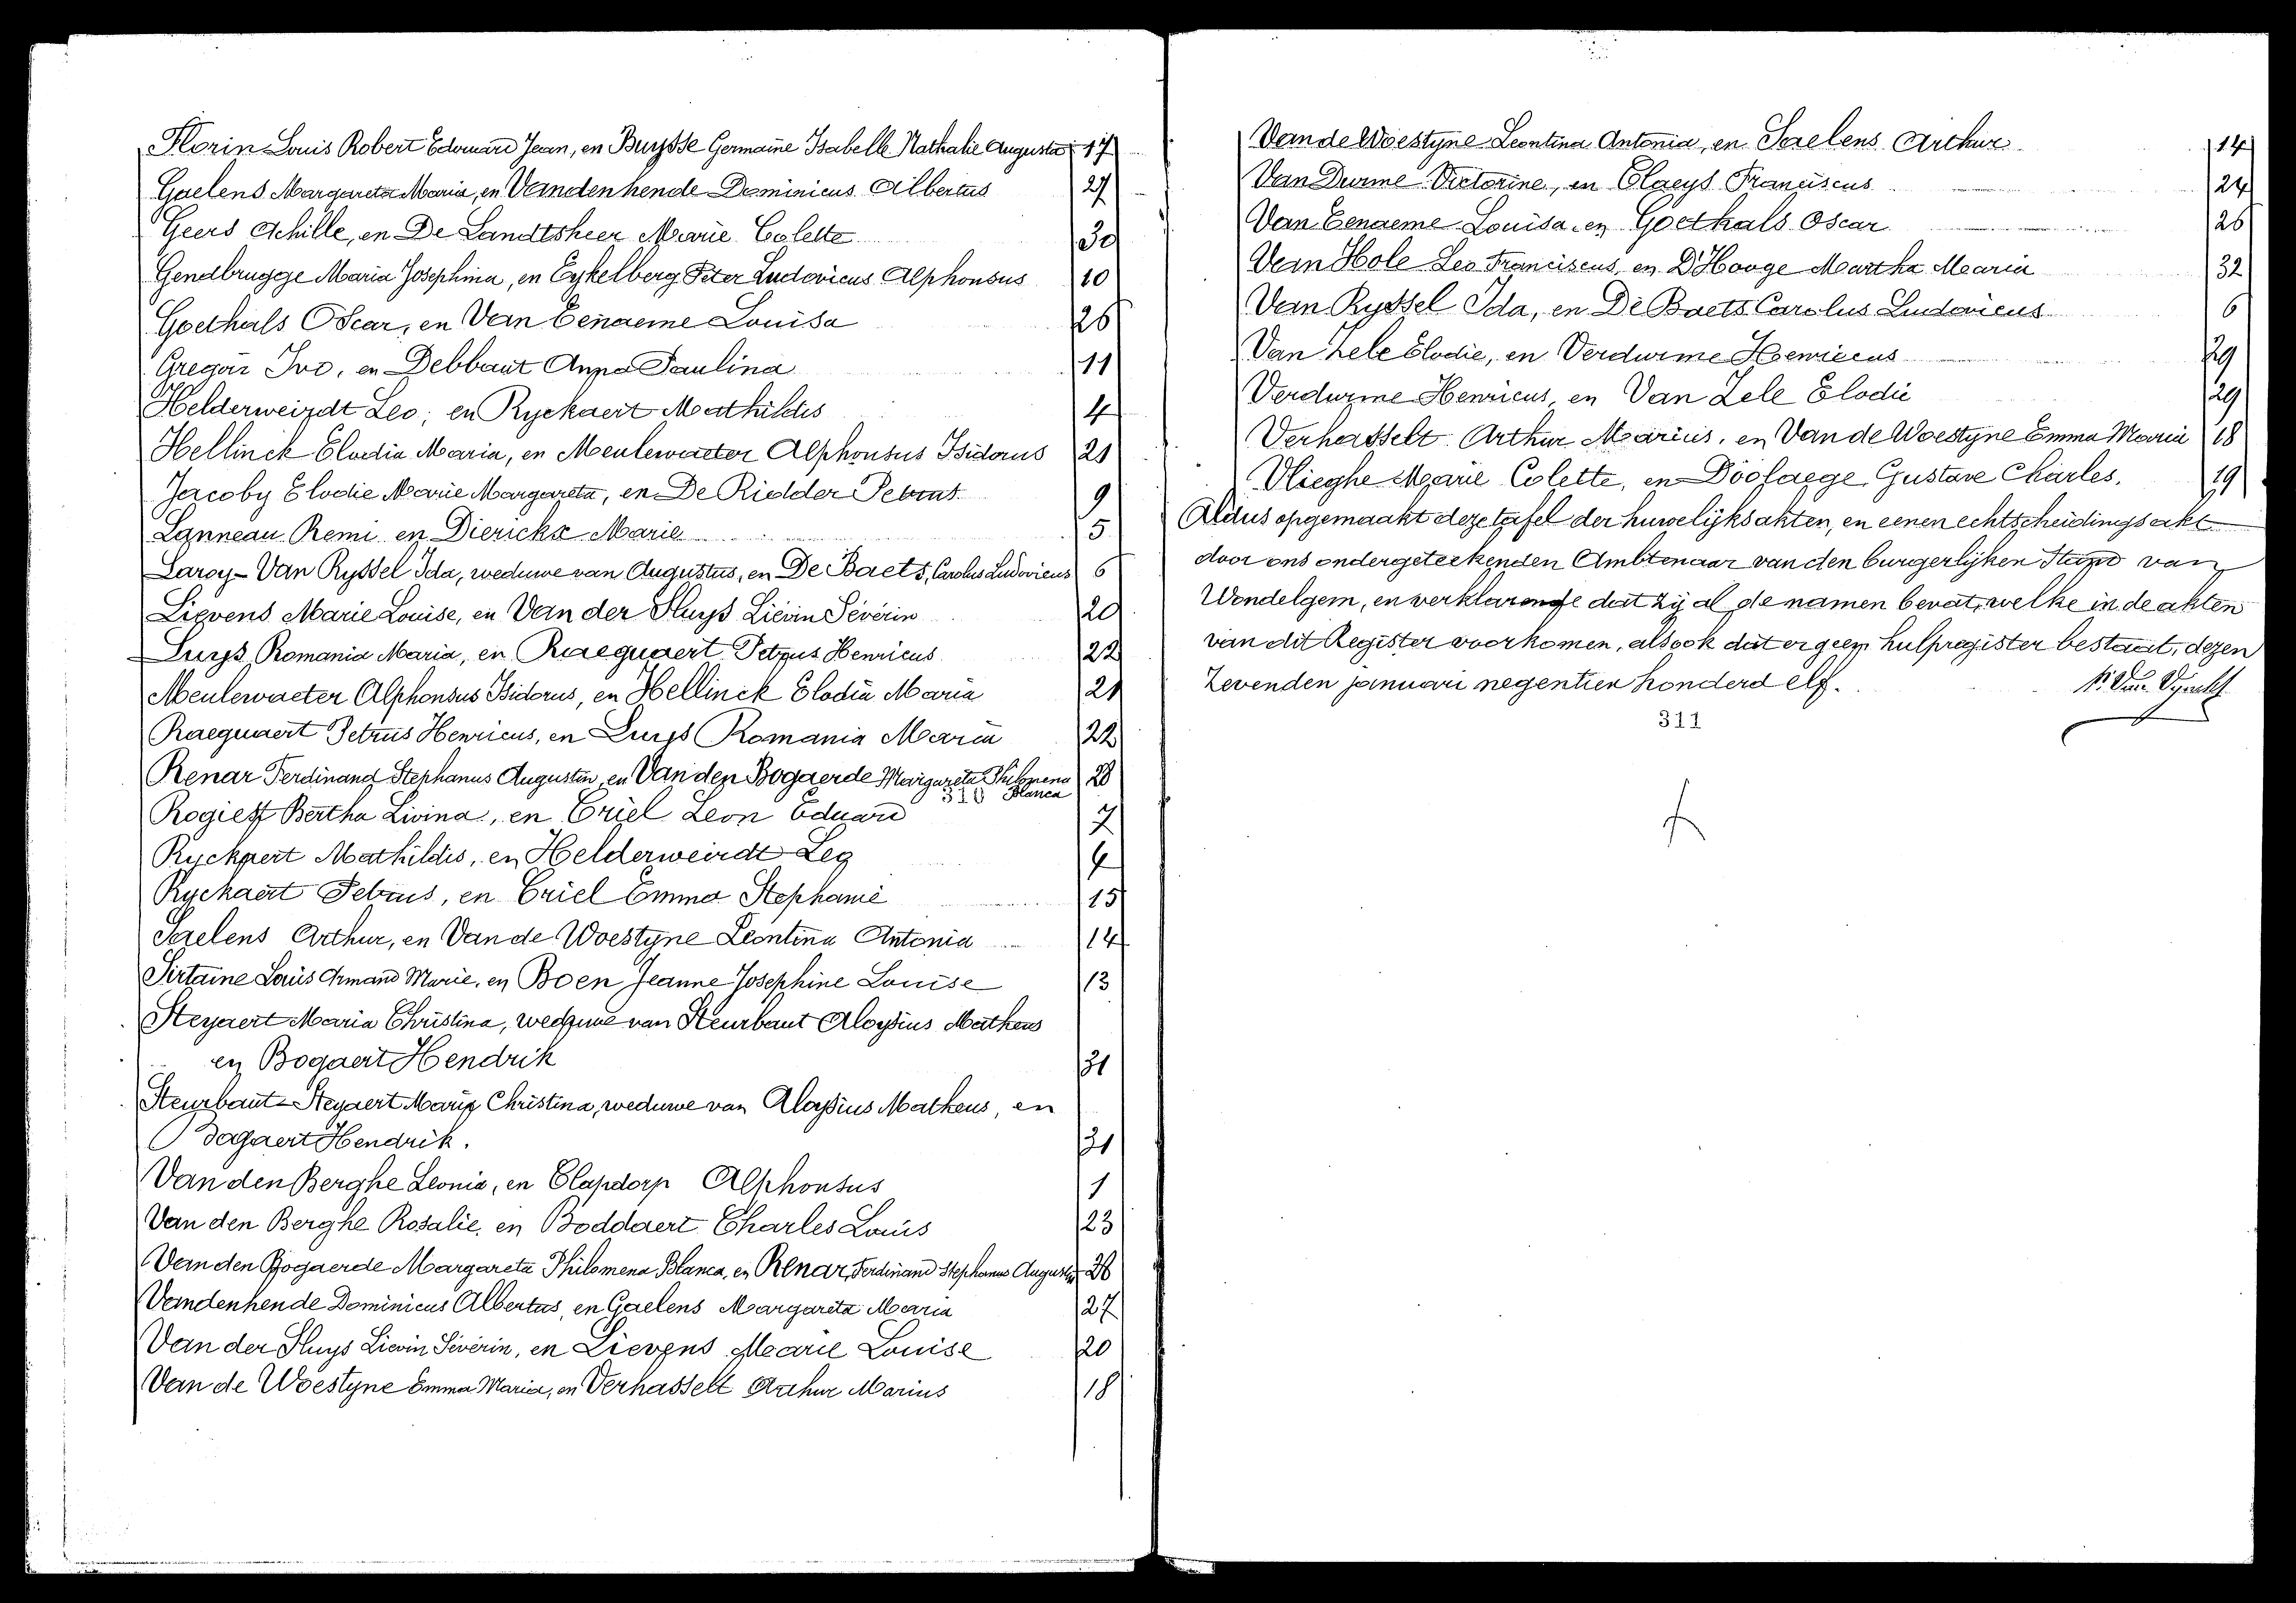 Florin Louis Robert Edouard Jean, en Buysse Germaine Isabelle Nathalie Augusta 17
Gaelens Margareta Maria, en Vandenhende Dominicus Albertus 27
Geers Achille, en De Landtsheer Marie Colette 30
Gendbrugge Maria Josephina, en Eykelberg Peter Ludovicus Alphonsus 10
Goethals Oscar, en Van Eenaeme Louisa 26
Gregoir Ivo, en Debbaut Anna Paulina 11
Helderweirdt Leo, en Ryckaert Mathildis 4
Hellinck Elodia Maria, en Meulewaeter Alphonsus Isidorus 21
Jacoby Elodie Marie Margareta, en De Ridder Petrus 9
Lanneau Remi en Dierickx Marie 5
Laroy-Van Ryssel Ida, weduwe van Augustus, en De Baets, Carolus Ludovicus 6
Lievens Marie Louise, en Van der Sluys Liévin Séverin 20
Luys Romania Maria, en Raequaert Petrus Henricus 22
Meulewaeter Alphonsus Isidorus, en Hellinck Elodia Maria 21
Raequaert Petrus Henricus, en Luys Romania Maria 22
Renar Ferdinand Stephanus Augustin, en Van den Bogaerde Margareta Philomena 28
310 Blanca
Rogiest Bertha Livina, en Criel Leon Eduard 7
Ryckaert Mathildis, en Helderweirdt Leo 4
Ryckaert Petrus, en Criel Emma Stephanie 15
Saelens Arthur, en Van de Woestyne Leontina Antonia 14
Sirtaine Louis Armand Marie, en Boen Jeanne Josephine Louise 13
Steyaert Maria Christina, weduwe van Steurbaut Aloysius Matheus
en Bogaert Hendrik 31
Steurbaut-Steyaert Maria Christina, weduwe van Aloysius Matheus, en
Bogaert Hendrik. 31
Van den Berghe Leonia, en Clapdorp Alphonsus 1
Van den Berghe Rosalie, en Boddaert Charles Louis 23
Van den Bogaerde Margareta Philomena Blanca, en Renar, Ferdinand Stephanus Augustin 28
Vandenhende Dominicus Albertus, en Gaelens Margareta Maria 27
Van der Sluys Lievin Séverin, en Lievens Marie Louise 20
Van de Woestyne Emma Maria, en Verhasselt Arthur Marius 18
Van de Woestyne Leontina Antonia, en Saelens Arthur 14
Van Durme Victorine, en Claeys Franciscus 24
Van Eenaeme Louisa, en Goethals Oscar 26
Van Hole Leo Franciscus, en D'Hooge Martha Maria 32
Van Ryssel Ida, en De Baets Carolus Ludovicus 6
Van Zele Elodie, en Verdurme Henricus 29
Verdurme Henricus, en Van Zele Elodie 29
Verhasselt Arthur Marius, en Van de Woestyne Emma Maria 18
Vlieghe Marie Colette, en Doolaege Gustave Charles. 19
Aldus opgemaakt deze tafel der huwelijksakten, en eenen echtscheidingsakt
door ons ondergeteekenden Ambtenaar van den burgerlijken Stand van
Wondelgem, en verklarende dat zij al de namen bevat, welke in de akten
van dit Register voorkomen, alsook dat er geen hulpregister bestaat, dezen
Zevenden januari negentien honderd elf.
311